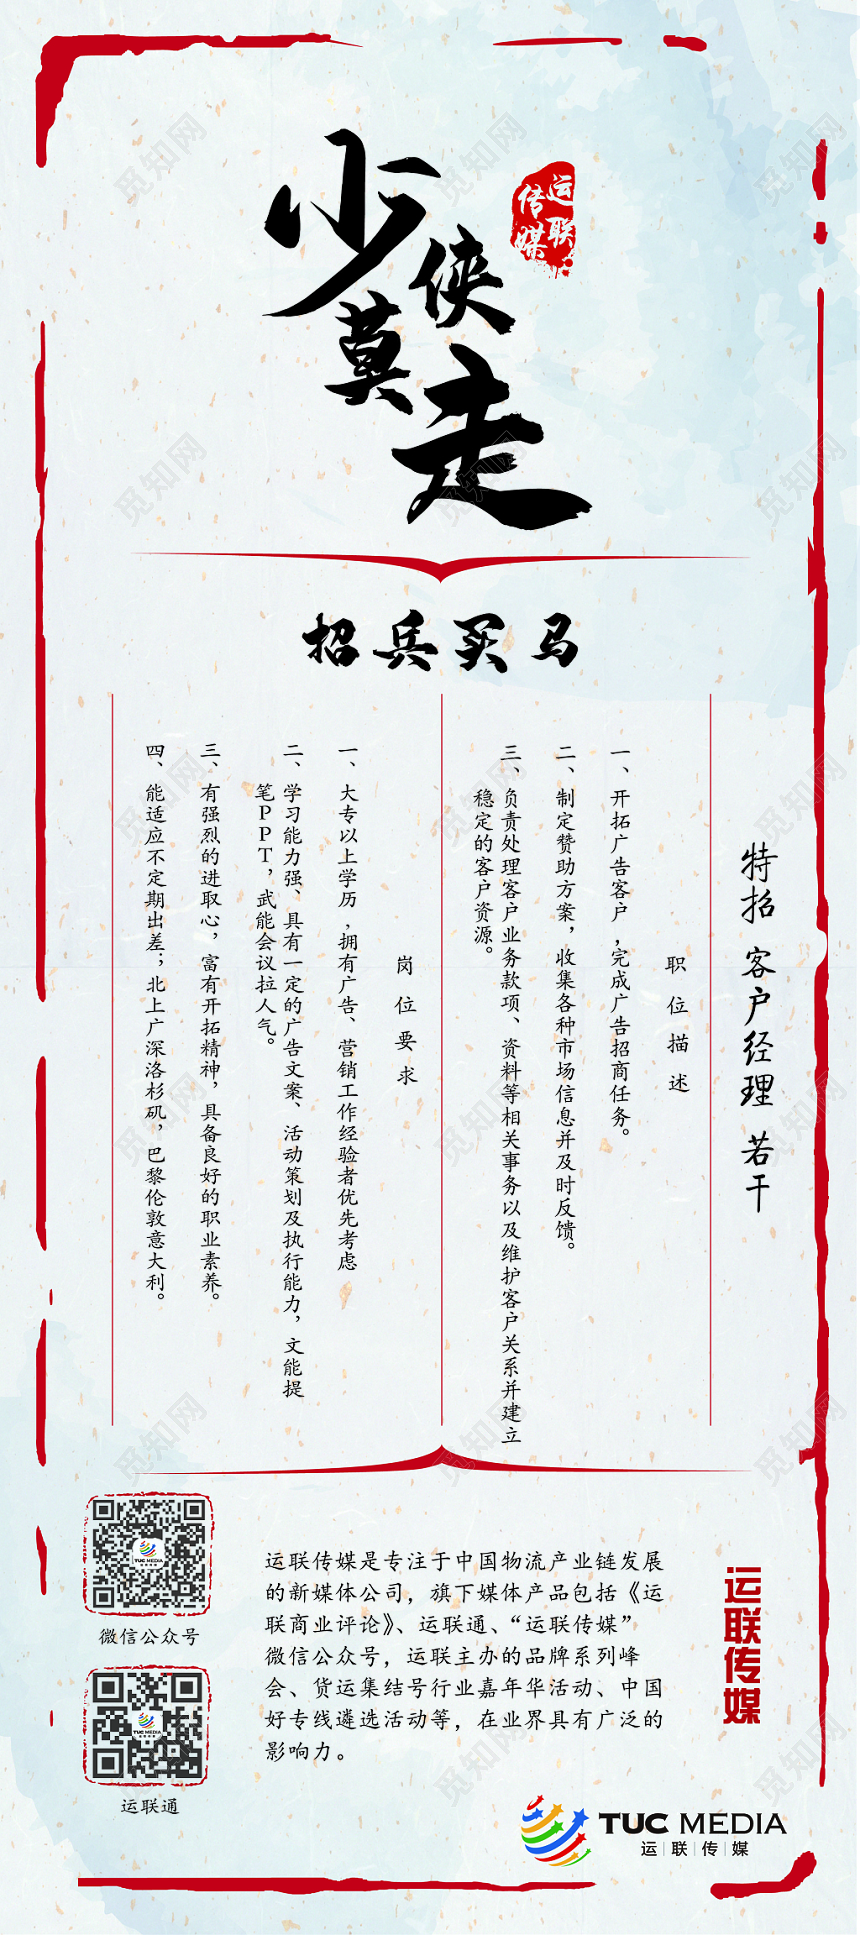 少侠莫走
运联
传媒
招兵买马
特招 客户经理 若干
职位描述
一、开拓广告客户,完成广告招商任务。
二、制定赞助方案，收集各种市场信息并及时反馈。
三、负责处理客户业务款项、资料等相关事务以及维护客户关系并建立
稳定的客户资源。
岗位要求
一、大专以上学历,拥有广告、营销工作经验者优先考虑
二、学习能力强、具有一定的广告文案、活动策划及执行能力，文能提
笔PPT，武能会议拉人气。
三、有强烈的进取心，富有开拓精神，具备良好的职业素养。
四、能适应不定期出差；北上广深洛杉矶，巴黎伦敦意大利。
TUC MEDIA
微信公众号
TUC MEDIA
运联通
运联传媒是专注于中国物流产业链发展
的新媒体公司，旗下媒体产品包括《运
联商业评论》、运联通、“运联传媒”
微信公众号，运联主办的品牌系列峰
会、货运集结号行业嘉年华活动、中国
好专线遴选活动等，在业界具有广泛的
影响力。
运联传媒
TUC MEDIA
运|联|传|媒
觅知网